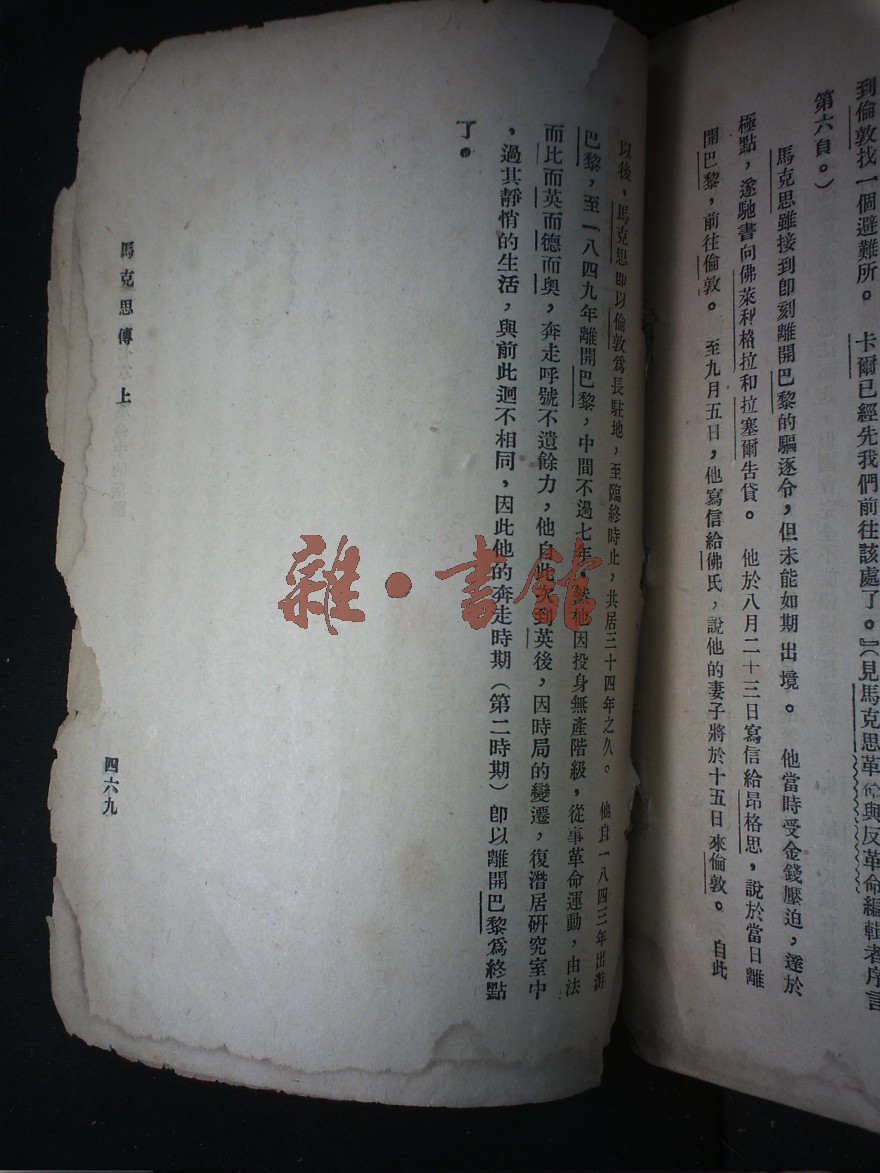 到倫敦找一個避難所。　卡爾已經先我們前往該處了。』（見馬克思革命與反革命編輯者序言
第六自。）
馬克思雖接到卽刻離開巴黎的驅逐令，但未能如期出境。　他當時受金錢壓迫，遂於
極點，遂馳書向佛萊秤格拉和拉塞爾告貸。　他於八月二十三日寫信給昂格思，說於當日離
開巴黎，前往倫敦。　至九月五日，他寫信給佛氏，說他的妻子將於十五日來倫敦。　自此
以後，馬克思卽以倫敦爲長駐地，至臨終時止，共居三十四年之久。　他自一八四三年出游
巴黎，至一八四九年離開巴黎，中間不過七年，他因投身無產階級，從事革命運動，由法
而比而英而德而奥，奔走呼號不遺餘力，他自此次到英後，因時局的變遷，復潛居研究室中
，過其靜悄的生活，與前此迥不相同，因此他的奔走時期（第二時期）卽以離開巴黎爲終點
了。
馬克思傳　上
四六九
雜·書館